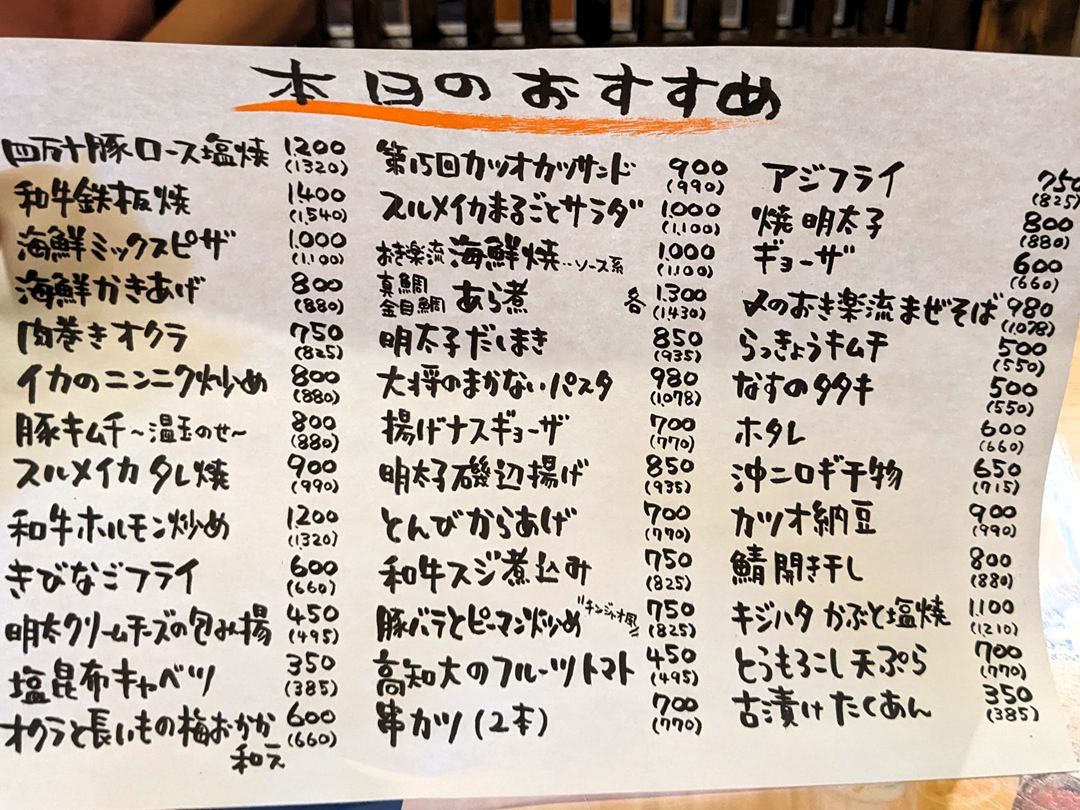 本日のおすすめ
四万十豚ロース塩焼 1200 (1320)
和牛鉄板焼 1.400 (1.540)
海鮮ミックスピザ 1.000 (1.100)
海鮮かきあげ 800 (880)
肉巻きオクラ 750 (825)
イカのニンニク炒め 800 (880)
豚キムチ～温玉のせ～ 800 (880)
スルメイカタレ焼 900 (990)
和牛ホルモン炒め 1200 (1320)
きびなごフライ 600 (660)
明太クリームチーズの包み揚 450 (495)
塩昆布キャベツ 350 (385)
オクラと長いもの梅おかか 600 (660)
和え
第15回カツオカツサンド 900 (990)
スルメイカまるごとサラダ 1.000 (1.100)
おき楽流海鮮焼‥ソース系 1.000 (1.100)
真鯛
金目鯛 あら煮 各 1.300 (1.430)
明太子だしまき 850 (935)
大将のまかないパスタ 980 (1078)
揚げナスギョーザ 700 (770)
明太子磯辺揚げ 850 (935)
とんびからあげ 700 (770)
和牛スジ煮込み 750 (825)
豚バラとピーマン炒め "チンジャオ風" 750 (825)
高知大のフルーツトマト 450 (495)
串カツ(2本) 700 (770)
アジフライ 750 (825)
焼明太子 800 (880)
ギョーザ 600 (660)
〆のおき楽流まぜそば 980 (1078)
らっきょうキムチ 500 (550)
なすのタタキ 500 (550)
ホタレ 600 (660)
沖ニロギ干物 650 (715)
カツオ納豆 900 (990)
鯖開き干し 800 (880)
キジハタかぶと塩焼 1.100 (1210)
とうもろこし天ぷら 700 (770)
古漬けたくあん 350 (385)